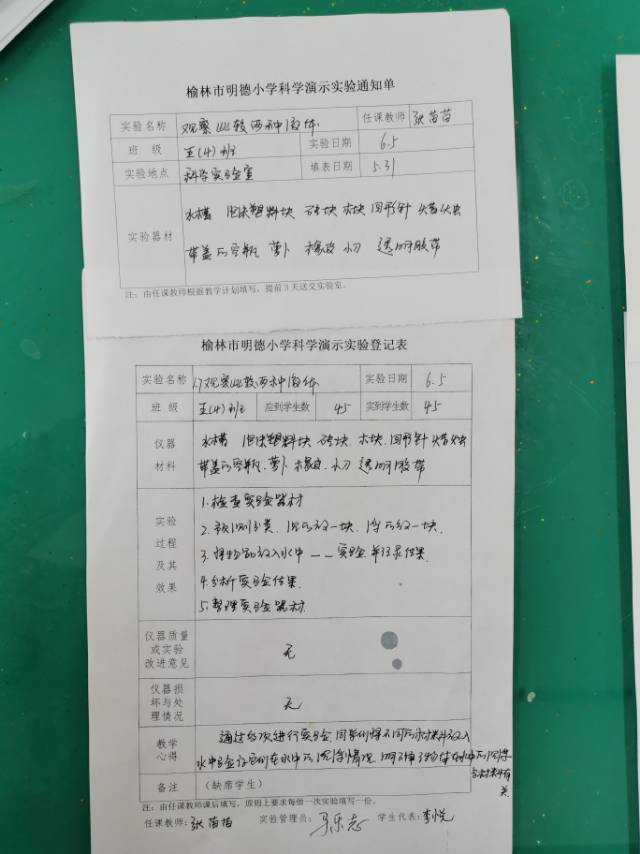 榆林市明德小学科学演示实验通知单
实验名称 观察比较两种液体 任课教师 张苗苗
班 级 五(4)班 实验日期 6.5
实验地点 科学实验室 填表日期 5.31
实验器材 水槽 泡沫塑料块 砖块 木块 回形针 蜡烛
带盖的空瓶 萝卜 橡皮 小刀 透明胶带
注：由任课教师根据教学计划填写，提前3天送交实验室。
榆林市明德小学科学演示实验登记表
实验名称 观察比较两种液体 实验日期 6.5
班 级 五(4)班 应到学生数 45 实到学生数 45
仪器材料 水槽 泡沫塑料块 砖块 木块 回形针 蜡烛
带盖的空瓶 萝卜 橡皮 小刀 透明胶带
实验过程及其效果
1.检查实验器材
2.预测分类，沉的放一块，浮的放一块。
3.将物品放入水中——实验并记录结果。
4.分析实验结果。
5.整理实验器材。
仪器质量或实验改进意见 无
仪器损坏与处理情况 无
教学心得 通过这次进行实验，同学们将不同的材料放入
水中验证它们在水中的沉浮情况，明确了物体在水中的沉浮
与材料有关
备注 （缺席学生）
注：由任课教师课后填写，原则上要求每做一次实验填写一份。
任课教师：张苗苗 实验管理员： 学生代表：李悦